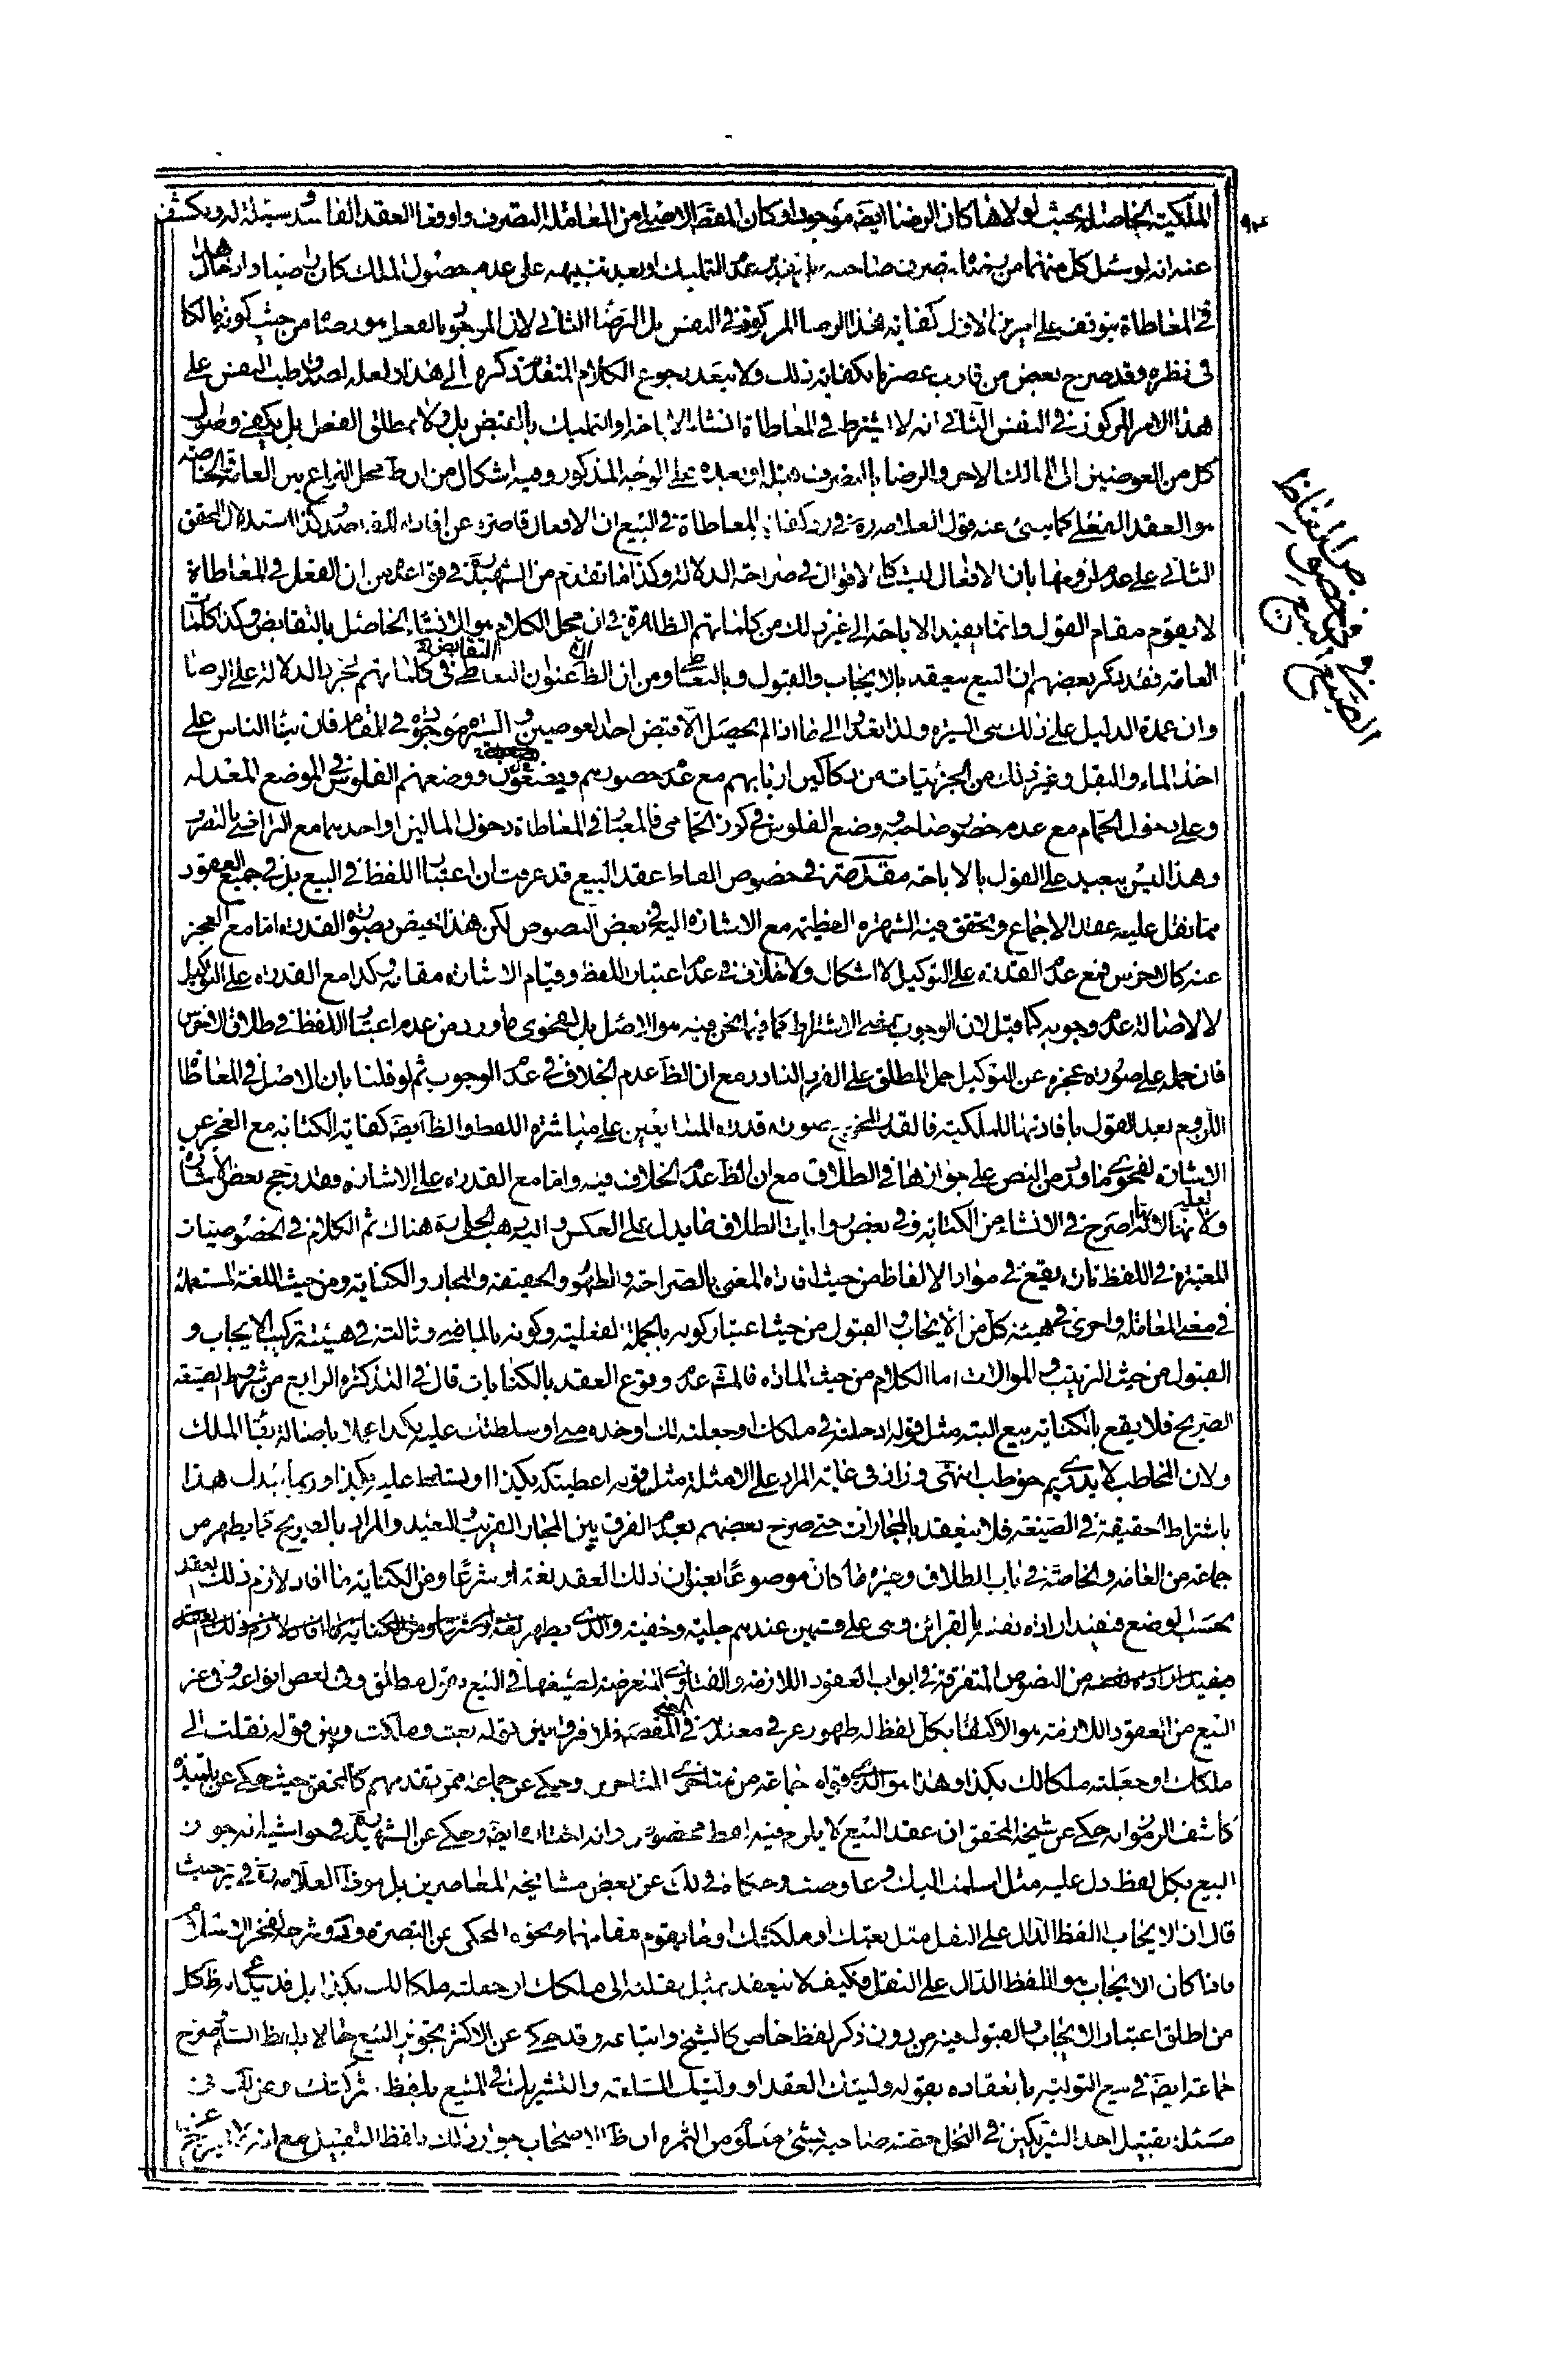 الملكية الحاصلة بحيث لولاها كان الرضا ايضا موجودا وكان المقصد الاصلي من المعاملة التصرف واوقعا العقد الفاسد وسيلة له ويكشف
عنه انه لو سئل كل منهما من رضاه بتصرف صاحبه بتقدير عدم التمليك او بعد تنبيهه على عدم حصول الملك كان راضيا وادخال هذا
في المعاطاة يتوقف على امرين الاول كفاية هذا الرضا المركوز في النفس بل الرضا الثاني لان الموجود بالفعل هو رضاه من حيث كونه مالكا
في نظره وقد صرح بعض من قارب عصرنا بكفاية ذلك ولا يبعد رجوع الكلام المتقدم ذكره الى هذا ولعله لصدق طيب النفس على
هذا الامر المركوز في النفس الثاني انه لا يشترط في المعاطاة انشاء الاباحة او التمليك بالقبض بل ولا بمطلق الفعل بل يكفي وصول
كل من العوضين الى المالك الاخر والرضا بالتصرف قبله او بعده على الوجه المذكور وفيه اشكال من ان ظ محل النزاع بين العامة والخاصة
هو العقد الفعلي كما ينبئ عنه قول العلامة ره في رد كفاية المعاطاة في البيع ان الافعال قاصرة عن افادة المقاصد وكذا استدلال المحقق
الثاني على عدم لزومها بان الافعال ليست كالاقوال في صراحة الدلالة وكذا ما تقدم من الشهيد ره في قواعده من ان الفعل في المعاطاة
لا يقوم مقام القول وانما يفيد الاباحة الى غير ذلك من كلماتهم الظاهرة في ان محل الكلام هو الانشاء الحاصل بالتقابض وكذا كلمات
العامة فقد ذكر بعضهم ان البيع ينعقد بالايجاب والقبول وبالتعاطي ومن ان الظ ان عنوان التعاطي في كلماتهم لمجرد الدلالة على الرضا
وان عمدة الدليل على ذلك هي السيرة ولذا تعدوا الى ما اذا لم يحصل الا قبض احد العوضين والسيرة موجودة في المقام فان بناء الناس على
اخذ الماء والبقل وغير ذلك من الجزئيات من دكاكين اربابهم مع عدم حضورهم ووضعهم الفلوس في الموضع المعد له
وعلى دخول الحمام مع عدم حضور صاحبه ووضع الفلوس في كوز الحمامي فالمعيار في المعاطاة دخول المالين او احدهما مع التراضي بالتصرف
وهذا ليس ببعيد على القول بالاباحة مقدمة في خصوص الفاظ عقد البيع قد عرفت ان اعتبار اللفظ في البيع بل في جميع العقود
مما نقل عليه عقد الاجماع وتحقق فيه الشهرة العظيمة مع الاشارة اليه في بعض النصوص لكن هذا يختص بصورة القدرة اما مع العجز
عنه كالاخرس فمع عدم القدرة على التوكيل لا اشكال ولا خلاف في عدم اعتبار اللفظ وقيام الاشارة مقامه وكذا مع القدرة على التوكيل
لا لاصالة عدم وجوبه كما قيل لان الوجوب بمعنى الاشتراط كما فيما نحن فيه هو الاصل بل لفحوى ما ورد من عدم اعتبار اللفظ في طلاق الاخرس
فان حمله على صورة عجزه عن التوكيل حمل المطلق على الفرد النادر مع ان الظ عدم الخلاف في عدم الوجوب ثم لو قلنا بان الاصل في المعاطاة
اللزوم بعد القول بافادتها للملكية فالقدر المخرج صورة قدرة المتبايعين على مباشرة اللفظ والظ ايضا كفاية الكتابة مع العجز عن
الاشارة لفحوى ما ورد من النص على جوازها في الطلاق مع ان الظ عدم الخلاف فيه واما مع القدرة على الاشارة فقد رجح بعض الاشارة
ولعله لانها اصرح في الانشاء من الكتابة وفي بعض روايات الطلاق ما يدل على العكس واليه ذهب الحلي ره هناك ثم الكلام في الخصوصيات
المعتبرة في اللفظ تارة يقع في مواد الالفاظ من حيث افادة المعنى بالصراحة والظهور والحقيقة والمجاز والكناية ومن حيث اللغة المستعملة
في معنى المعاملة واخرى في هيئة كل من الايجاب والقبول من حيث اعتبار كونه بالجملة الفعلية وكونه بالماضي وثالثة في هيئة تركيب الايجاب و
القبول من حيث الترتيب والموالات اما الكلام من حيث المادة فالمشهور عدم وقوع العقد بالكنايات قال في التذكرة الرابع من شروط الصيغة
الصريح فلا يقع بالكناية بيع البتة مثل قوله ادخلته في ملكك او جعلته لك او خذه مني او سلطتك عليه بكذا عملا باصالة بقاء الملك
ولان المخاطب لا يدري بم خوطب انتهى وزاد في غاية المراد على الامثلة مثل قوله اعطيتكه بكذا او تسلط عليه بكذا وربما يبدل هذا
باشتراط الحقيقة في الصيغة فلا ينعقد بالمجازات حتى صرح بعضهم بعدم الفرق بين المجاز القريب والبعيد والمراد بالصريح كما يظهر من
جماعة من العامة والخاصة في باب الطلاق وغيره ما كان موضوعا بعنوان ذلك العقد لغة او شرعا ومن الكناية ما افاد لازم ذلك العقد
بحسب الوضع فيفيد ارادة نفسه بالقرائن وهي على قسمين عندهم جلية وخفية والذي يظهر
من النصوص المتفرقة في ابواب العقود اللازمة والفتاوى المتعرضة لصيغها في البيع بقول مطلق وفي بعض انواعه وفي غير
البيع من العقود اللازمة هو الاكتفاء بكل لفظ له ظهور عرفي معتد به في المعنى المقصود فلا فرق بين قوله بعت وملكت وبين قوله نقلت الى
ملكك او جعلته ملكا لك بكذا وهذا هو الذي قواه جماعة من متاخري المتاخرين وحكي عن جماعة ممن تقدمهم كالمحقق حيث حكي عن تلميذه
كاشف الرموز انه حكى عن شيخه المحقق ان عقد البيع لا يلزم فيه لفظ مخصوص وانه اختاره ايضا وحكي عن الشهيد ره في حواشيه انه جوز
البيع بكل لفظ دل عليه مثل اسلمت اليك وعاوضتك وحكاه في لك عن بعض مشايخه المعاصرين بل هو ظ العلامة ره في ير حيث
قال ان الايجاب اللفظ الدال على النقل مثل بعتك او ملكتك او ما يقوم مقامهما ونحوه المحكي عن التبصرة و وشرحه لفخر الاسلام
فاذا كان الايجاب هو اللفظ الدال على النقل فكيف لا ينعقد بمثل نقلته الى ملكك او جعلته ملكا لك بكذا بل قد يدعى انه ظ كل
من اطلق اعتبار الايجاب والقبول فيه من دون ذكر لفظ خاص كالشيخ واتباعه وقد حكي عن الاكثر تجويز البيع حالا بلفظ السلم وصرح
جماعة ايضا في بيع التولية بانعقاده بقوله وليتك العقد او وليتك السلعة والتشريك في المبيع بلفظ شركتك وعن لك في
مسئلة تقبيل احد الشريكين في النخل حصته صاحبه بشيء معلوم من الثمرة ان ظ الاصحاب جواز ذلك بلفظ التقبيل مع انه لا يخرج عن
في خصوص الفاظ
البيع